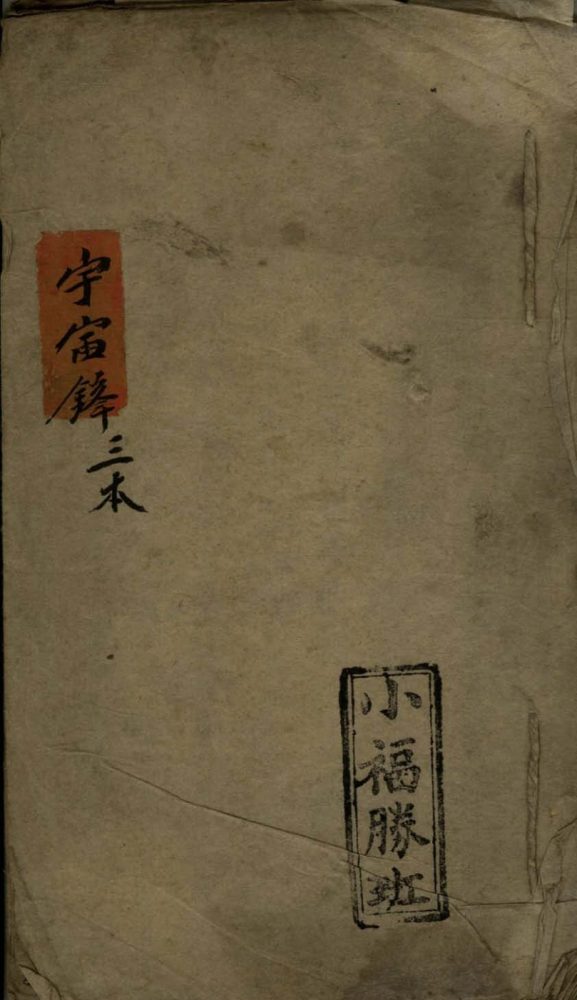 宇宙鋒三本
小福勝班